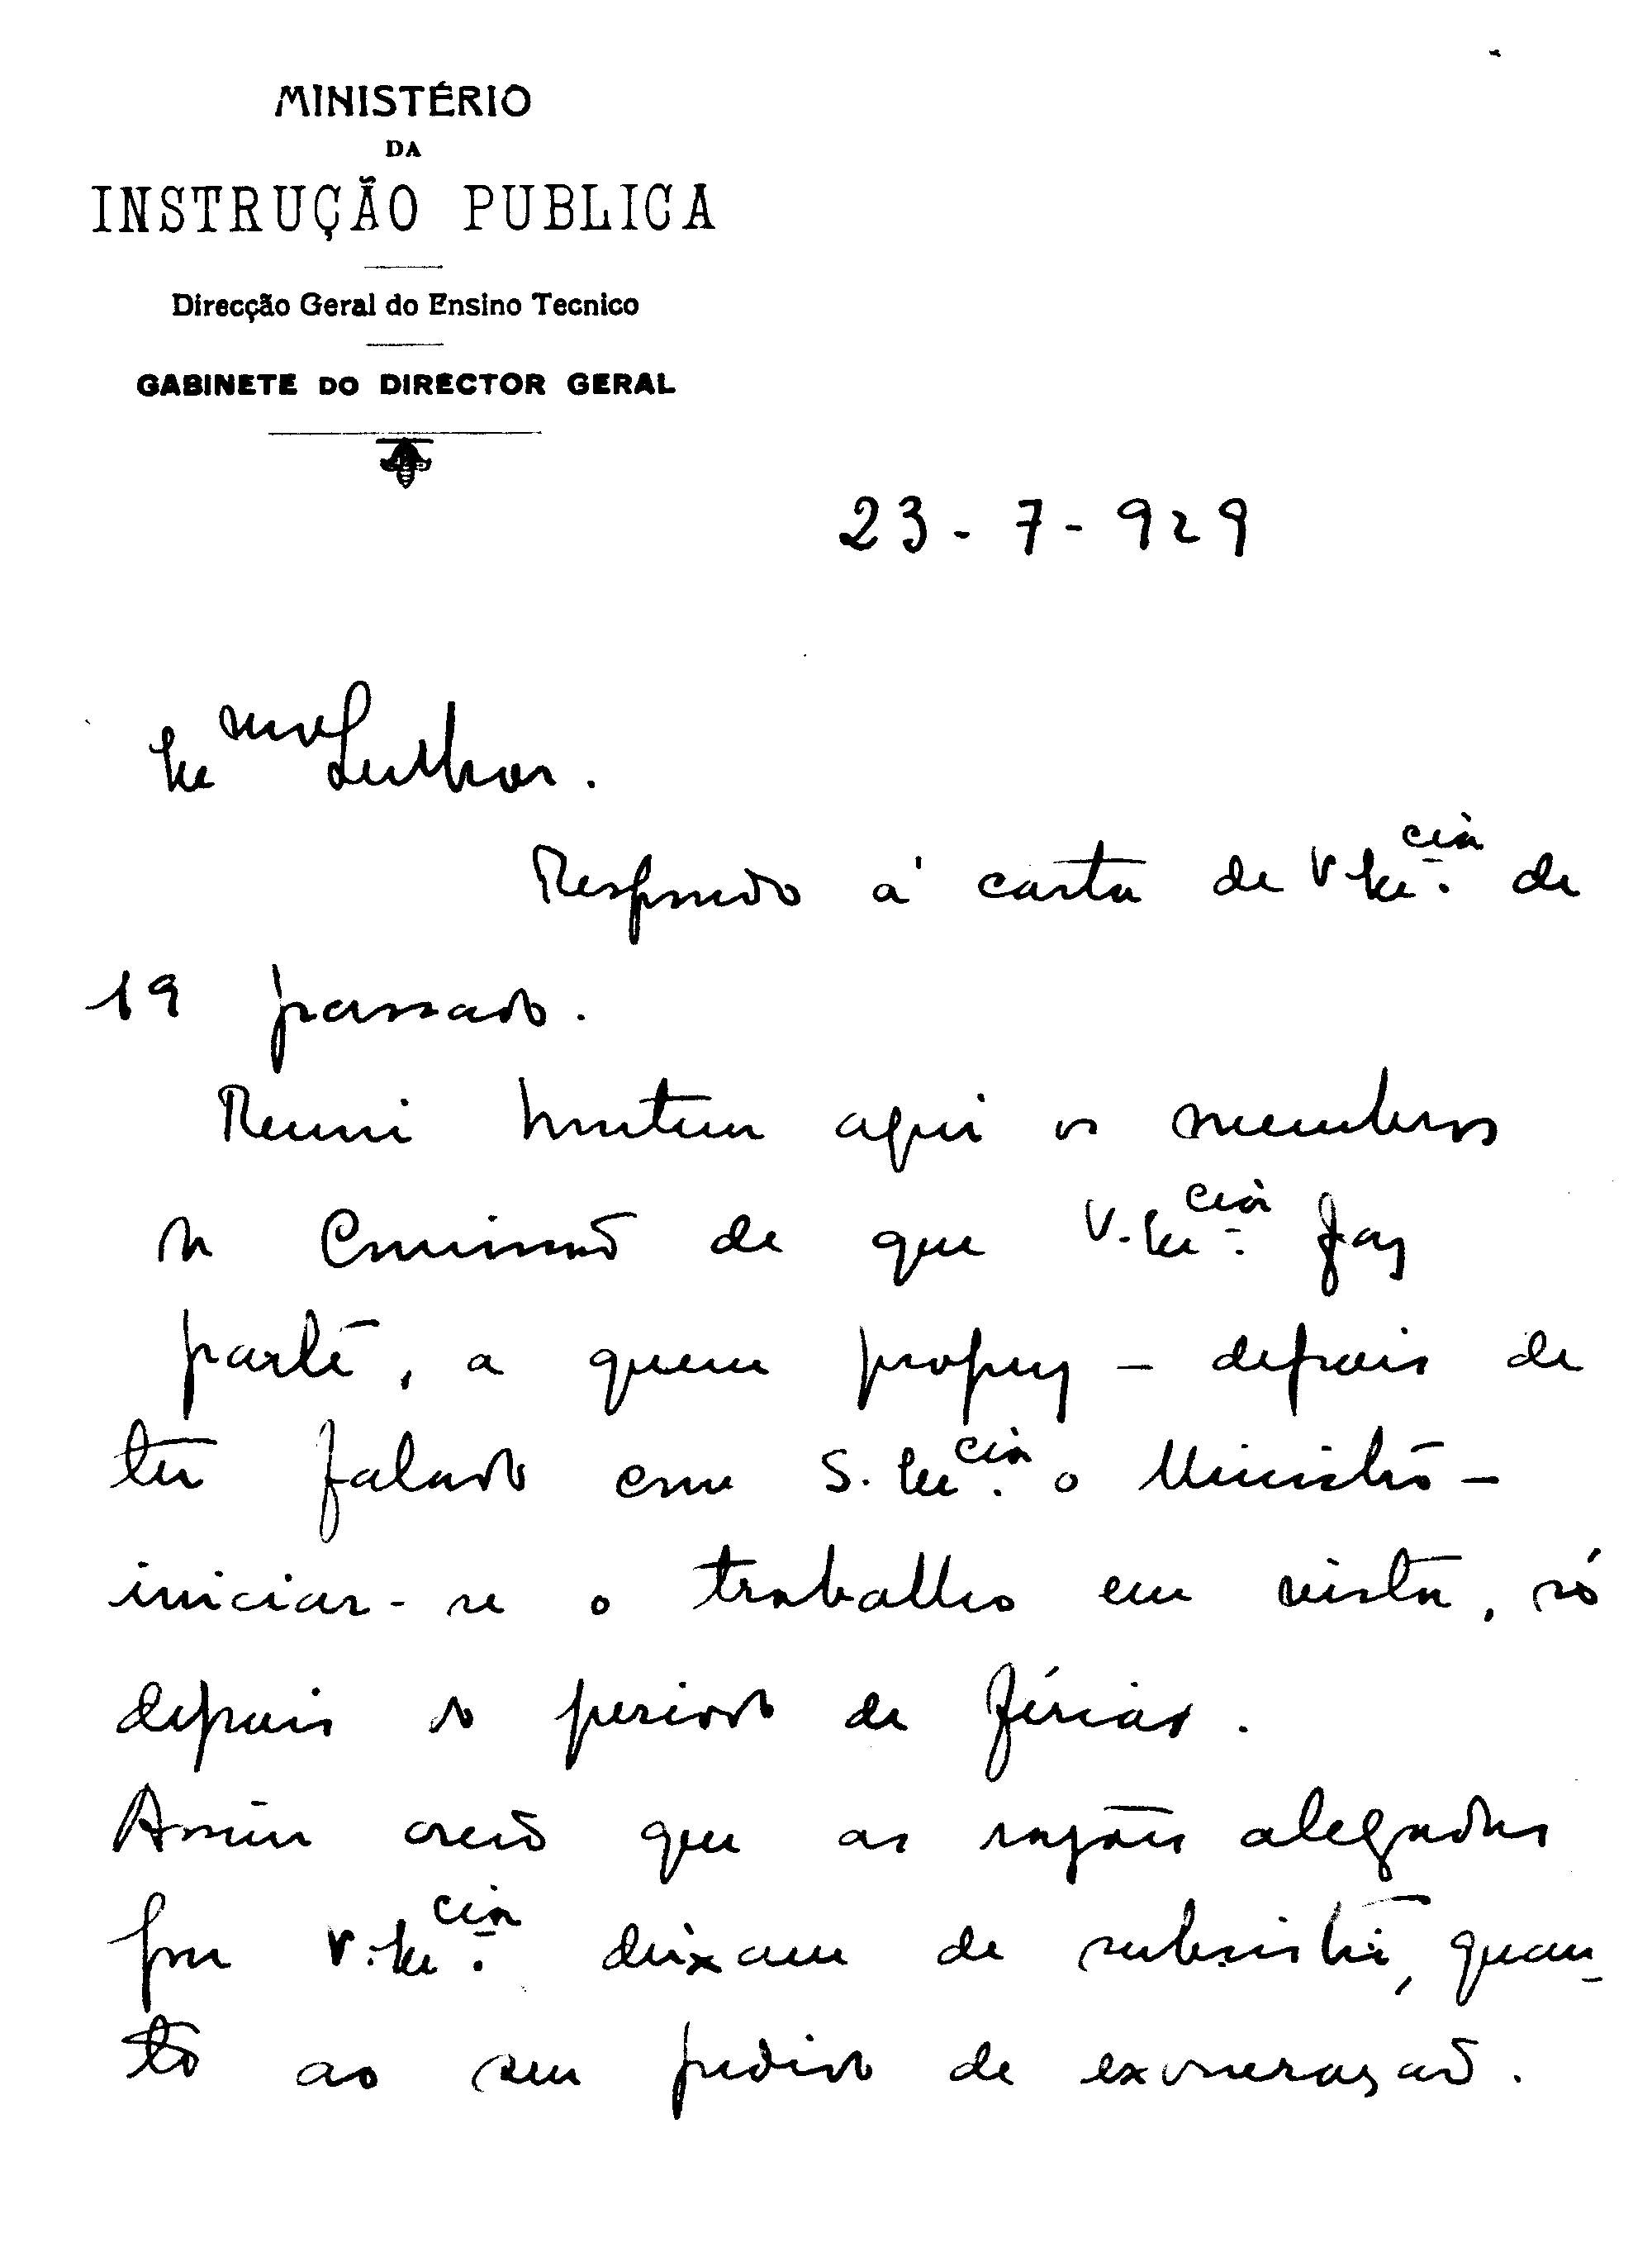 MINISTÉRIO
DA
INSTRUÇÃO PUBLICA
Direcção Geral do Ensino Tecnico
GABINETE DO DIRECTOR GERAL
23-7-929
Ex^mo Senhor.
Respondo á carta de V Ex^cia. de
19 passado.
Reuni hontem aqui os membros
da Comissão de que V. Ex^cia. faz
parte, a quem propuz – depois de
ter falado com S. Ex^cia. o Ministro –
iniciar-se o trabalho em vista, só
depois do periodo de férias.
Assim creio que as razões alegadas
por V. Ex^cia. deixam de subsistir, quan-
to ao seu pedido de exoneração.